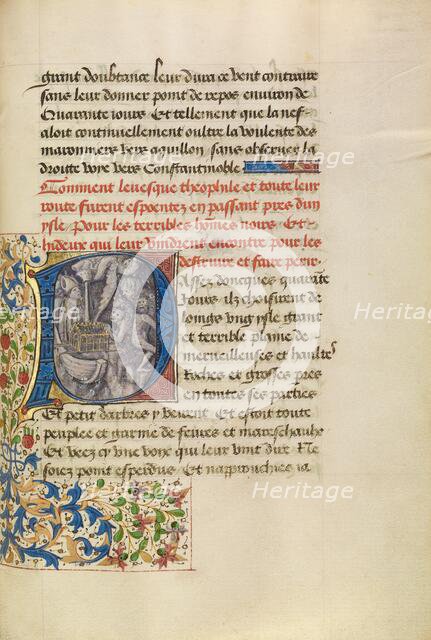 grant doubtance leur dura ce vent contraire
sans leur donner point de repos environ de
Quarante iours Et tellement que la nef
aloit continuellement oultre la voulente des
maronniers vers aquillon sans observer la
droitte voye vers Constantinoble
Comment levesque theophile et toute leur
route furent espoentez en passant pres dun
ysle Pour les terribles hommes noirs Et
hideux qui leur vindrent encontre pour les
destruire et faire perir
Passez doncques quarante
Jours ilz choisirent de
loingz ung ysle grant
et terrible plaine de
merveilleuses et haultes
Roches et grosses pres
en toutes ses parties
Et petit darbres y veirent Et estoit toute
peuplee et garnie de fevres et mareschaulx
Et veez cy une voix qui leur vint dire Ne
soiez point esperdus Et napprouchies ia
Heritage Images
Heritage Images
Heritage
Heritage